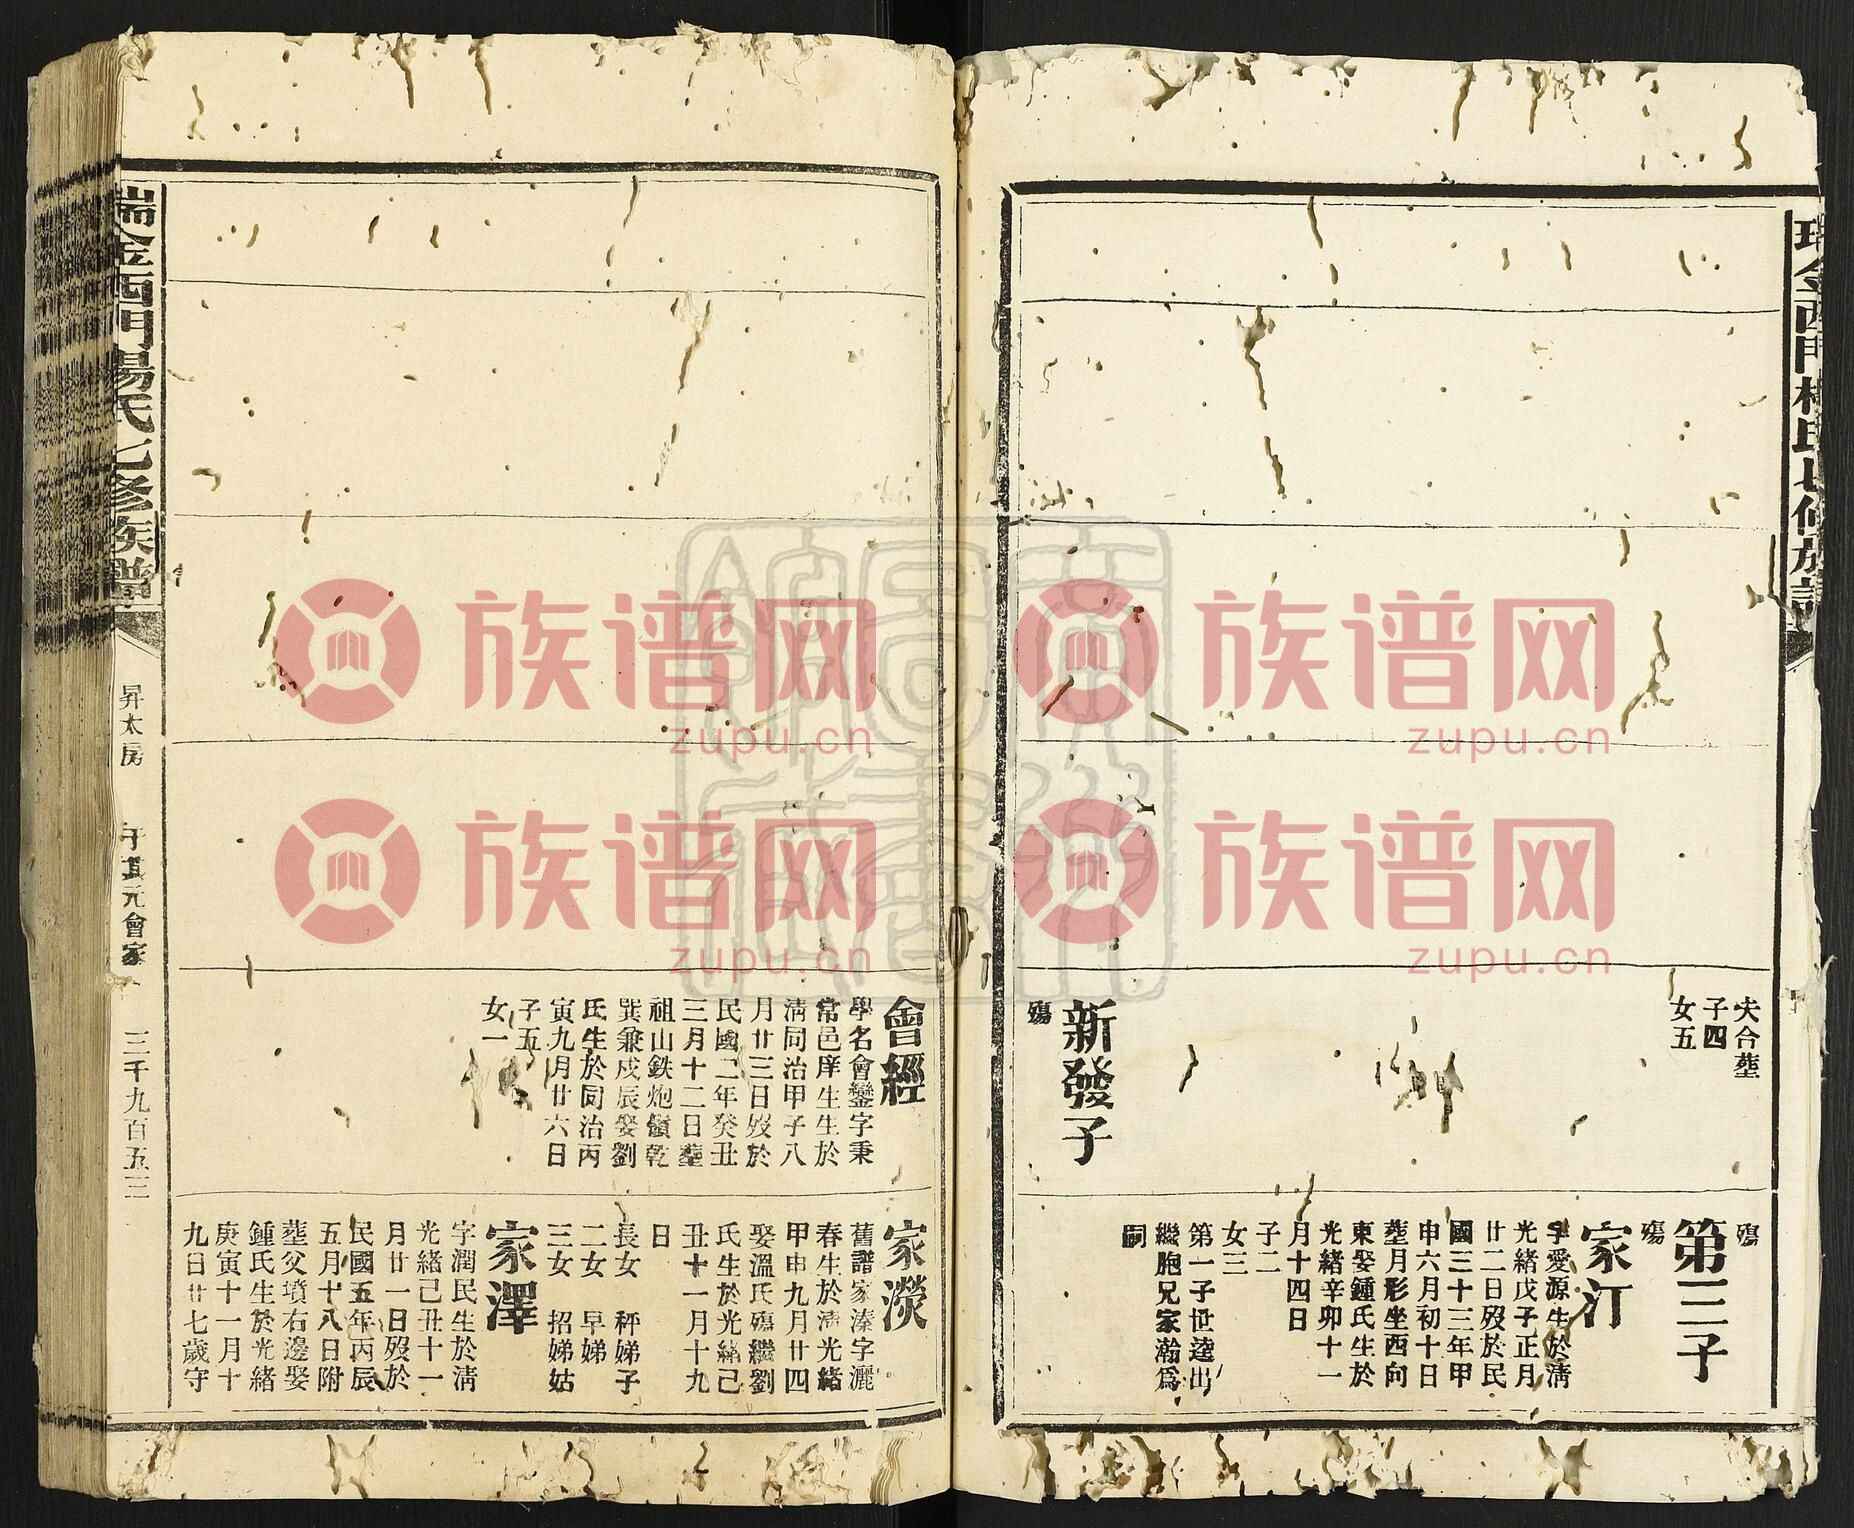 瑞金西門楊氏七修族譜
夫合塟
子四
女五
新發子
殤
殤
第三子
殤
家汀
字愛源生於清
光緒戊子正月
廿二日歿於民
國三十三年甲
申六月初十日
塟月形坐西向
東娶鍾氏生於
光緒辛卯十一
月十四日
子二
女三
第一子世達出
繼胞兄家瀚爲
嗣
會經
學名會鑾字秉
常邑庠生生於
清同治甲子八
月廿三日歿於
民國二年癸丑
三月十二日塟
祖山鉄炮嶺乾
巽兼戌辰娶劉
氏生於同治丙
寅九月廿六日
子五
女一
家濚
舊譜家溱字灑
春生於清光緒
甲申九月廿四
娶溫氏殤繼劉
氏生於光緒己
丑十一月十九
日
長女 秤娣子
二女 早娣
三女 招娣姑
家澤
字潤民生於清
光緒己丑十一
月廿一日歿於
民國五年丙辰
五月十八日附
塟父墳右邊娶
鍾氏生於光緒
庚寅十一月十
九日廿七歲守
瑞金西門楊氏七修族譜
昇太房
于其元會家
三千九百五三
族谱网
zupu.cn
族谱网
zupu.cn
族谱网
zupu.cn
族谱网
zupu.cn